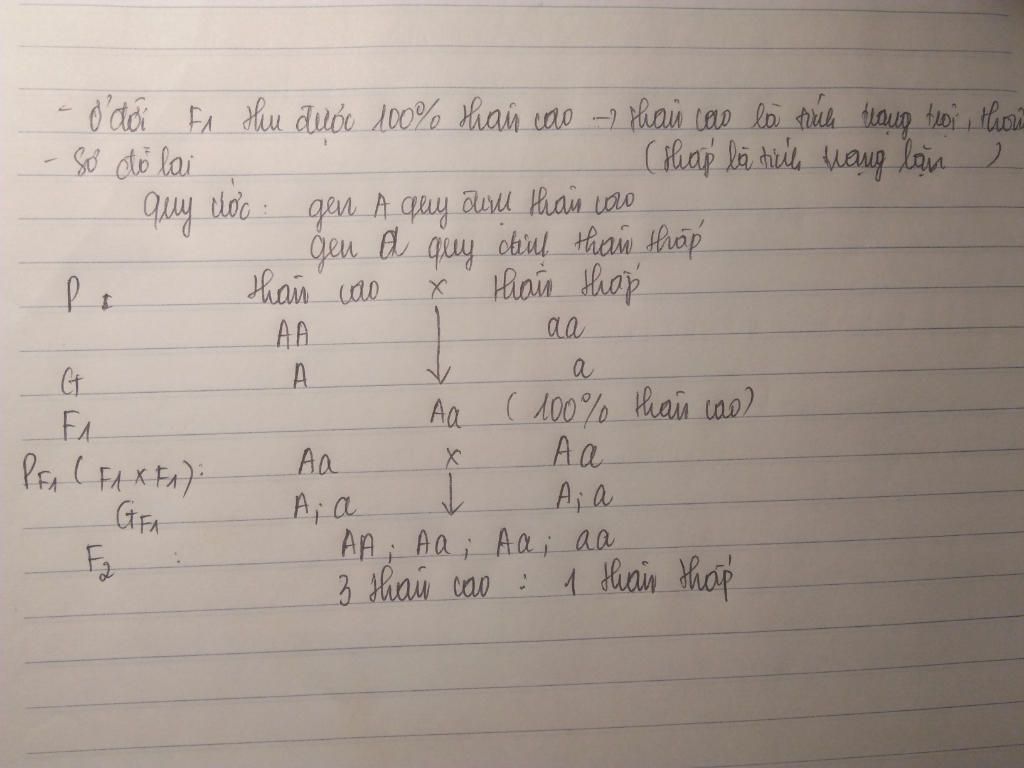 - Ở đời F1 thu được 100% thân cao → thân cao là tính trạng trội, thân
- Sơ đồ lai (thấp là tính trạng lặn )
quy ước : gen A quy định thân cao
gen a quy định thân thấp
P : thân cao x thân thấp
AA aa
G A a
F1 Aa ( 100% thân cao)
PF1 ( F1 x F1): Aa x Aa
GF1 A; a A; a
F2 : AA ; Aa ; Aa ; aa
3 thân cao : 1 thân thấp